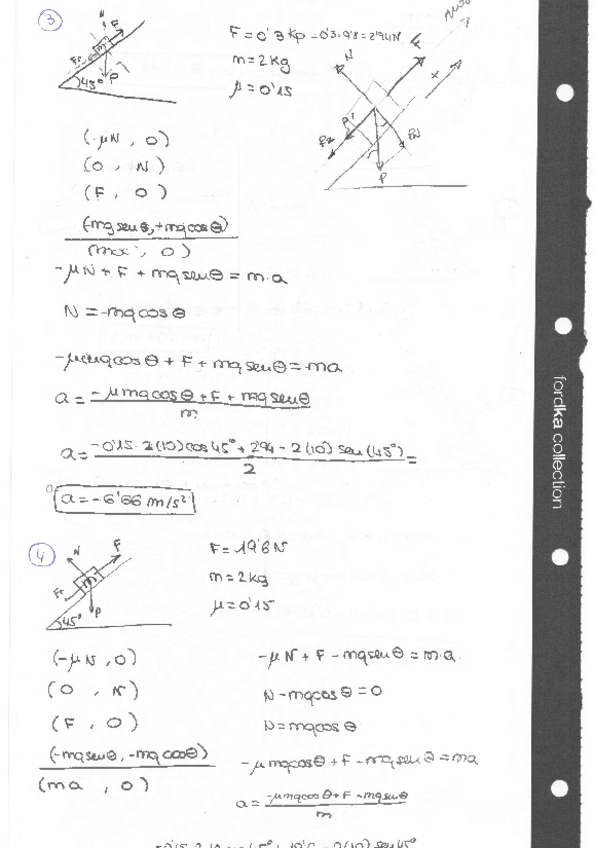 3
N
F
m
Fr
P
45°
F = 0'3 Kp = 0'3·9'8 = 2'94N
m = 2 kg
μ = 0'15
N
Fr
P
(-μN, 0)
(0, N)
(F, 0)
(-mg senθ, +mg cosθ)
, 0)
-μN + F + mg senθ = m·a
N = -mg cosθ
cosθ + F + mg senθ = ma
a = -μmg cosθ + F + mg senθ
m
a = -0'15·2(10) cos 45° + 2'94 - 2(10) sen(45°) =
2
a = -6'66 m/s²
4
N
F
m
Fr
P
45°
F = 19'6 N
m = 2 kg
μ = 0'15
(-μN, 0)
(0, N)
(F, 0)
(-mg senθ, -mg cosθ)
(ma, 0)
-μN + F - mg senθ = m·a
N - mg cosθ = 0
N = mg cosθ
-μmg cosθ + F - mg senθ = ma
a = -μmg cosθ + F - mg senθ
m
fordka collection